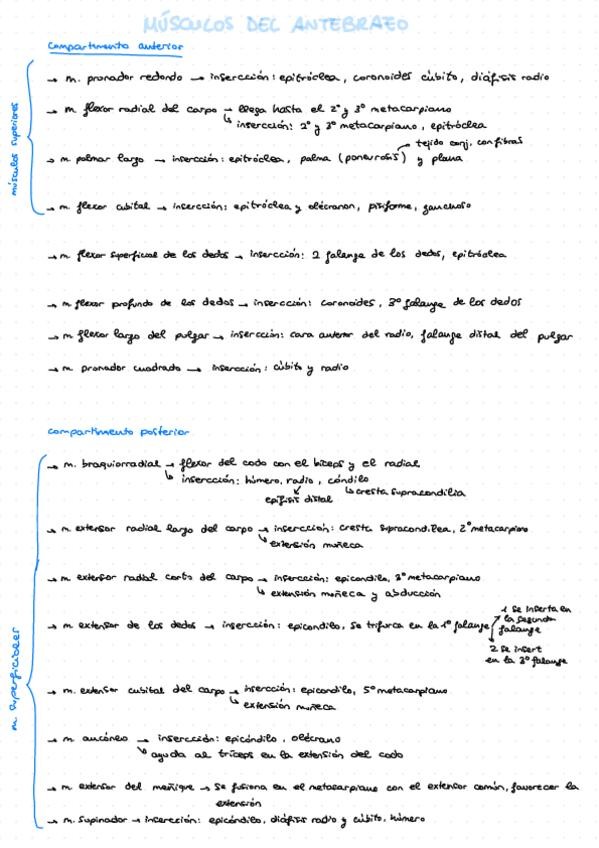 MÚSCULOS DEL ANTEBRAZO
Compartimento anterior
músculos superiores
→ m. pronador redondo → insercción: epitróclea, coronoides cúbito, diáfisis radio
→ m. flexor radial del carpo → llega hasta el 2º y 3º metacarpiano
↳ insercción: 2º y 3º metacarpiano, epitróclea
→ tejido conj. con fibras
→ m. palmar largo → insercción: epitróclea, palma (poneurosis) y plana
→ m. flexor cubital → insercción: epitróclea y olécranon, pisiforme, ganchoso
→ m. flexor superficial de los dedos → insercción: 2 falange de los dedos, epitróclea
→ m flexor profundo de los dedos → insercción: coronoides, 3º falange de los dedos
→ m. flexor largo del pulgar → insercción: cara anterior del radio, falange distal del pulgar
→ m. pronador cuadrado → insercción: cúbito y radio
compartimento posterior
m superficiales
→ m. braquiorradial → flexor del codo con el bíceps y el radial
↳ insercción: húmero, radio, cóndilo
epífisis distal ↳ cresta supracondilia
→ m extensor radial largo del carpo → insercción: cresta supracondilea, 2º metacarpiano
↳ extensión muñeca
→ m extensor radial corto del carpo → insercción: epicondilo, 3º metacarpiano
↳ extensión muñeca y abducción
→ m extensor de los dedos → insercción: epicondilo, se trifurca en la 1º falange
1 se inserta en
la segunda
falange
2 se insert
en la 3º falange
→ m. extensor cubital del carpo → insercción: epicondilo, 5º metacarpiano
↳ extensión muñeca
→ m ancóneo → insercción: epicóndilo, olécrano
↳ ayuda al tríceps en la extensión del codo
→ m extensor del meñique → se fusiona en el metacarpiano con el extensor común, favorecer la
extensión
→ m. supinador → insercción: epicóndilo, diáfisis radio y cúbito, húmero